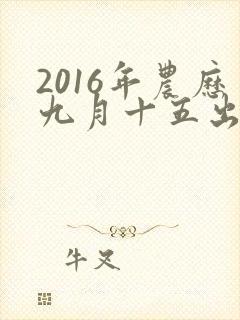 2016年農歷
九月十五出
牛叉